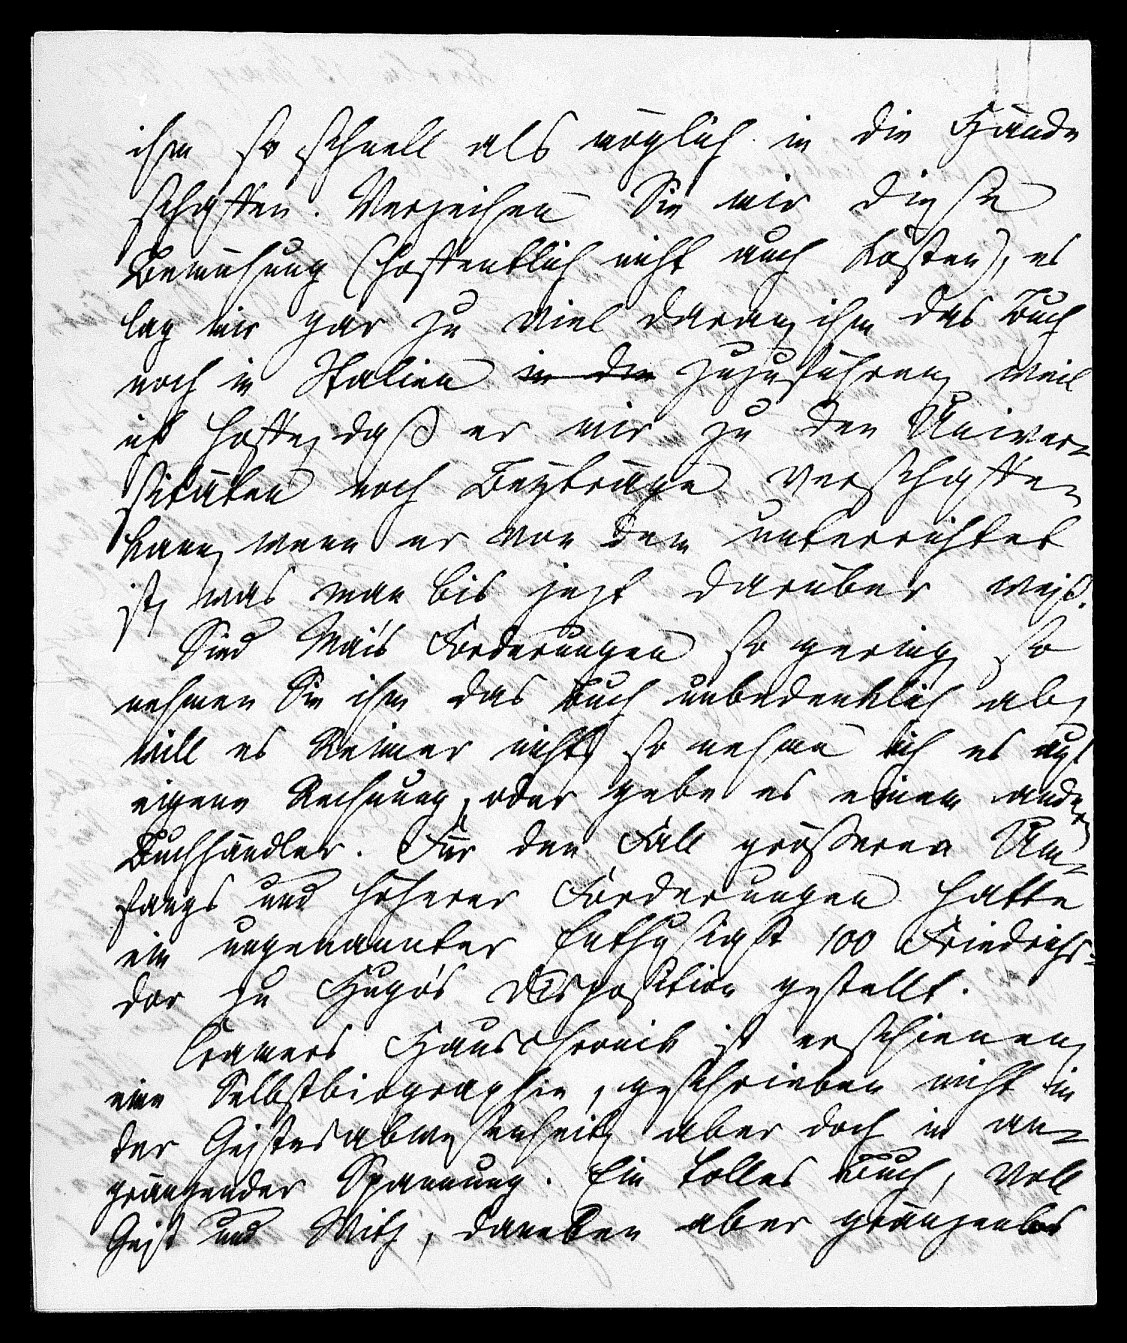 ihm so schnell als möglich in die Hände
schaffen. Verzeihen Sie mir diese
Bemühung (hoffentlich nicht auch Kosten), es
lag mir gar zu viel daran, ihm das Buch
noch in Italien in die zuzuführen, weil
ich hoffe, daß er mir zu den Univer-
sitäten noch Beyträge verschaffen
kann, wenn er von dem unterrichtet
ist, was man bis jezt darüber weiß.
Sind Mai's Forderungen so gering, so
nehmen Sie ihm das Buch unbedenklich ab,
will es Reimer nicht, so nehme ich es auf
eigene Rechnung, oder gebe es einem andern
Buchhändler. Für den Fall größeren Um-
fangs und höherer Forderungen hatte
ein ungenannter Enthusiast 100 Friedrichs-
dor zu Hugo's Disposition gestellt.
Cramers Hauschronik ist erschienen,
eine Selbstbiographie, geschrieben nicht in
der Geistesabwesenheit, aber doch in an-
gränzender Spannung. Ein tolles Buch, voll
Geist und Witz, daneben aber gränzenlos